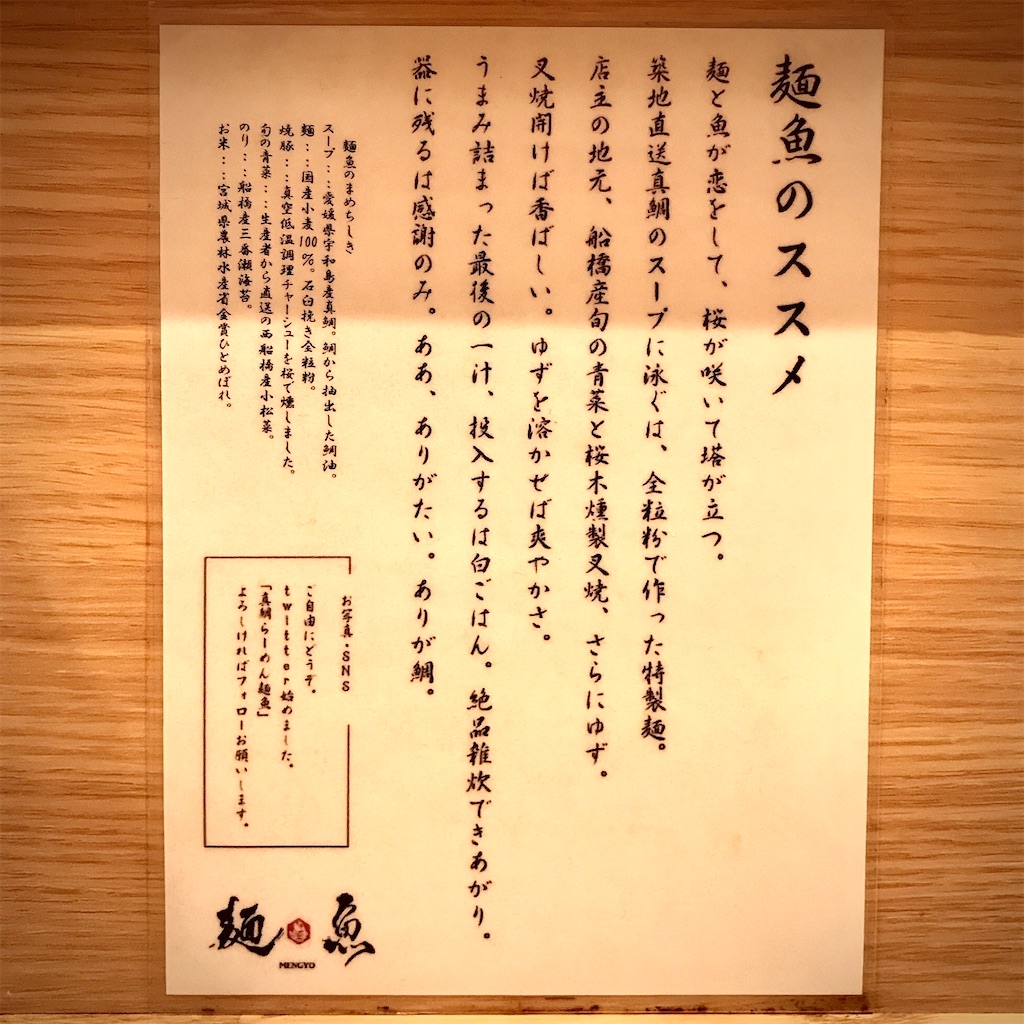 麺魚のススメ
麺と魚が恋をして、桜が咲いて塔が立つ。
築地直送真鯛のスープに泳ぐは、全粒粉で作った特製麺。
店主の地元、船橋産旬の青菜と桜木燻製叉焼、さらにゆず。
叉焼開けば香ばしい。ゆずを溶かせば爽やかさ。
うまみ詰まった最後の一汁、投入するは白ごはん。絶品雑炊できあがり。
器に残るは感謝のみ。ああ、ありがたい。ありが鯛。
麺魚のまめちしき
スープ：：愛媛県宇和島産真鯛。鯛から抽出した鯛油。
麺：：国産小麦100％。石臼挽き全粒粉。
焼豚：：真空低温調理チャーシューを桜で燻しました。
旬の青菜：：生産者から直送の西船橋産小松菜。
のり：：船橋産三番瀬海苔。
お米：：宮城県農林水産省金賞ひとめぼれ。
お写真・SNS
ご自由にどうぞ。
twitter始めました。
「真鯛らーめん麺魚」
よろしければフォローお願いします。
麺魚
MENGYO